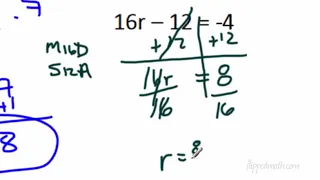 .7
16r − 12 = -4
MIDD +12 +12
SIZA
16r = 8
16 16
+1
8
r = 8
flippedmath.com